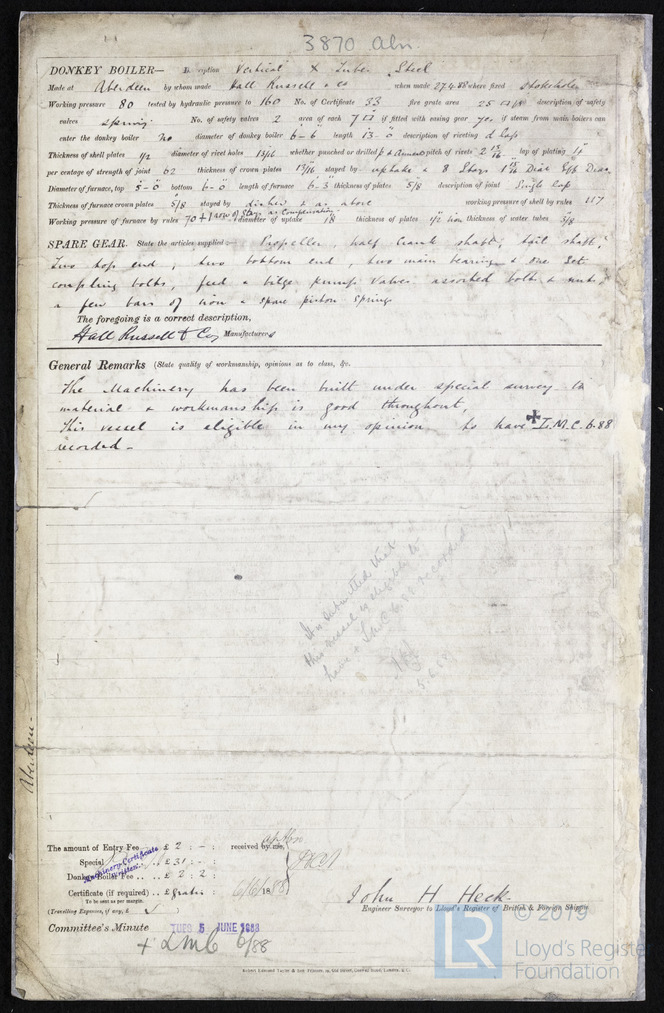 3870 Abn.
DONKEY BOILER— Description Vertical × Tube Steel
Made at Aberdeen by whom made Hall Russell & Co when made 27.4.88 where fixed stokehole
Working pressure 80 tested by hydraulic pressure to 160 No. of Certificate 33 fire grate area 25 description of safety
valves spring No. of safety valves 2 area of each 7 if fitted with easing gear yes if steam from main boilers can
enter the donkey boiler No diameter of donkey boiler 6-6 length 13-0 description of riveting d lap
Thickness of shell plates 1/2 diameter of rivet holes 13/16 whether punched or drilled pitch of rivets 2 13/16 lap of plating
per centage of strength of joint 62 thickness of crown plates 13/16 stayed by uptake & 8 Stays Dia
Diameter of furnace, top 5-0 bottom 6-0 length of furnace 6-3 thickness of plates 5/8 description of joint Single lap
Thickness of furnace crown plates 5/8 stayed by dished & as above working pressure of shell by rules 117
Working pressure of furnace by rules 70 + 1 row of Stays as Compensation diameter of uptake 18 thickness of plates 1/2 iron thickness of water tubes 3/8
SPARE GEAR. State the articles supplied:— Propeller, half Crank shaft, tail shaft,
Two top end, two bottom end, two main bearing & one Set
coupling bolts, feed & bilge pump valves assorted bolts & nuts,
a few bars of iron & spare piston springs
The foregoing is a correct description,
Hall Russell & Co Manufacturers
General Remarks (State quality of workmanship, opinions as to class, &c.
The Machinery has been built under special survey the
material & workmanship is good throughout,
This vessel is eligible in my opinion to have ✠ L.M.C. 6.88
recorded-
It is submitted that
this vessel is eligible to
have + LMC 6.88 recorded
5.6.88
Aberdeen-
The amount of Entry Fee .. £ 2 : - : received by me,
Special .. £ 31 : - :
Machinery Certificate
written
Donkey Boiler Fee .. £ 2 : 2 :
Certificate (if required) .. £ gratis : 6/6/1888
To be sent as per margin.
(Travelling Expenses, if any, £ )
John H Heck-
Engineer Surveyor to Lloyd's Register of British & Foreign Shipping
Committee's Minute TUES 5 JUNE 1888
+ LMC 6/88
© 2019
LR
Lloyd's Register
Foundation